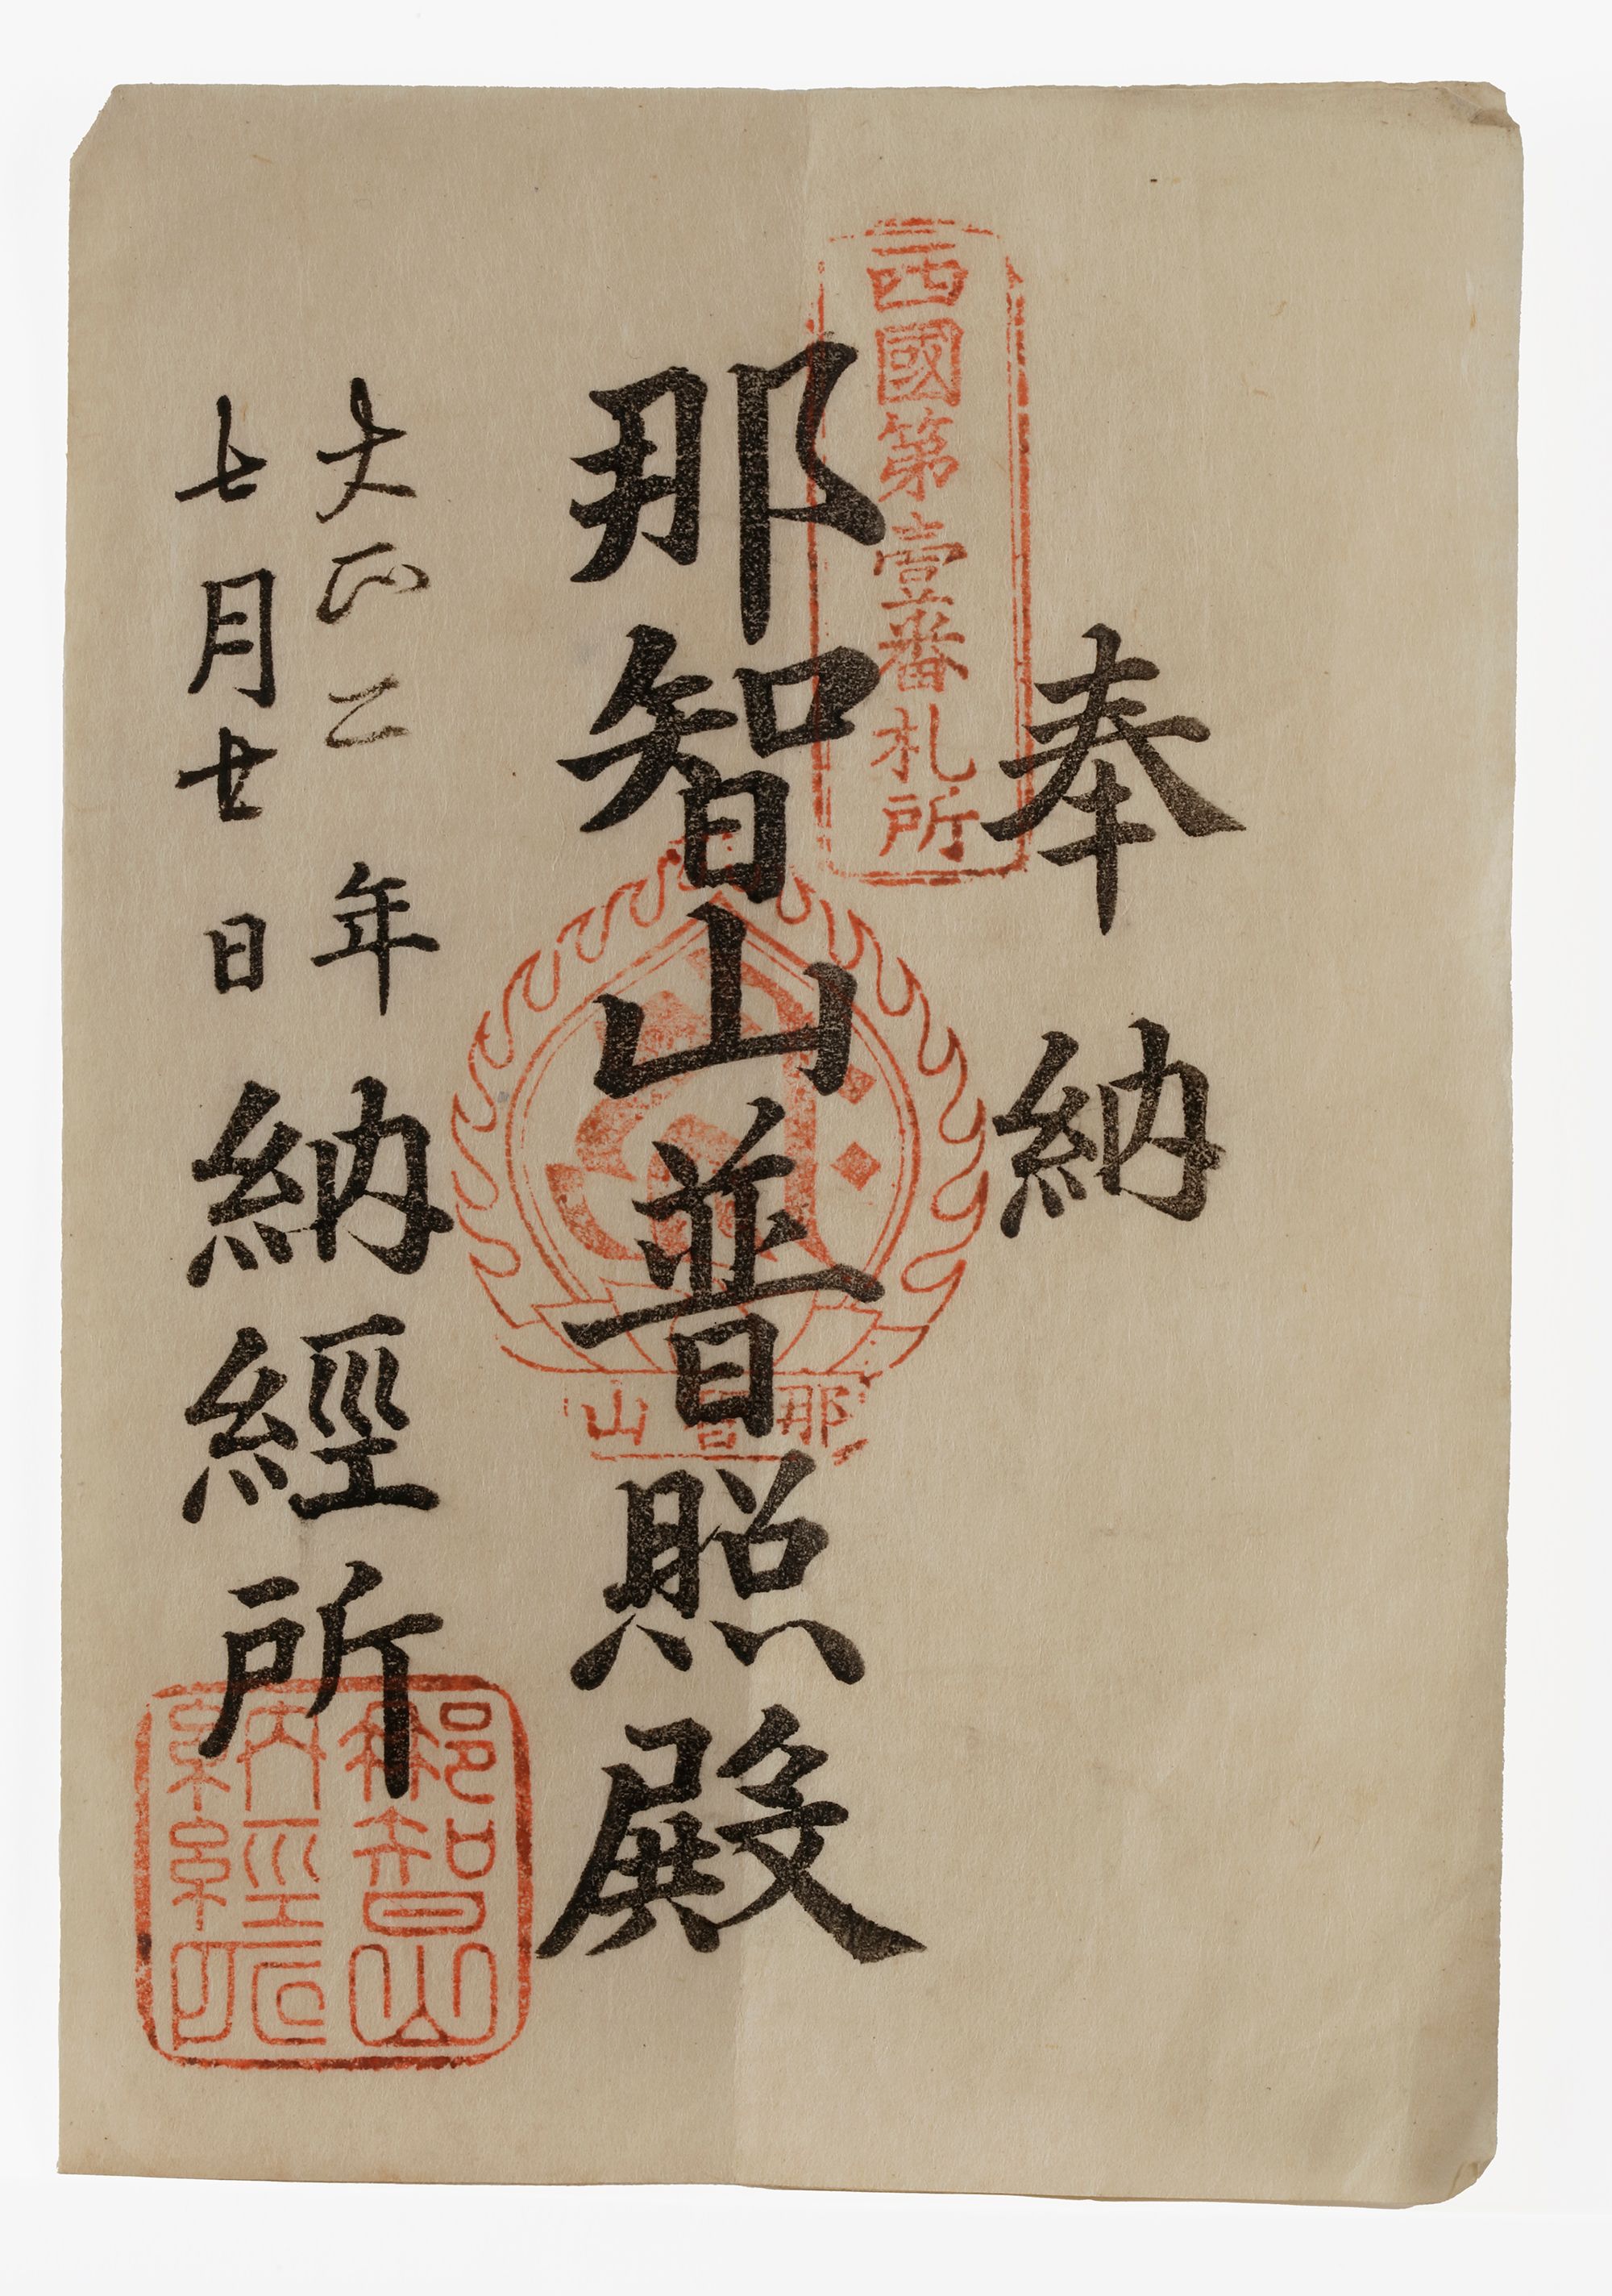 奉納
西國第壹番札所
那智山普照殿
那智山
大正二年
七月廿日
納經所
那智山
納經所